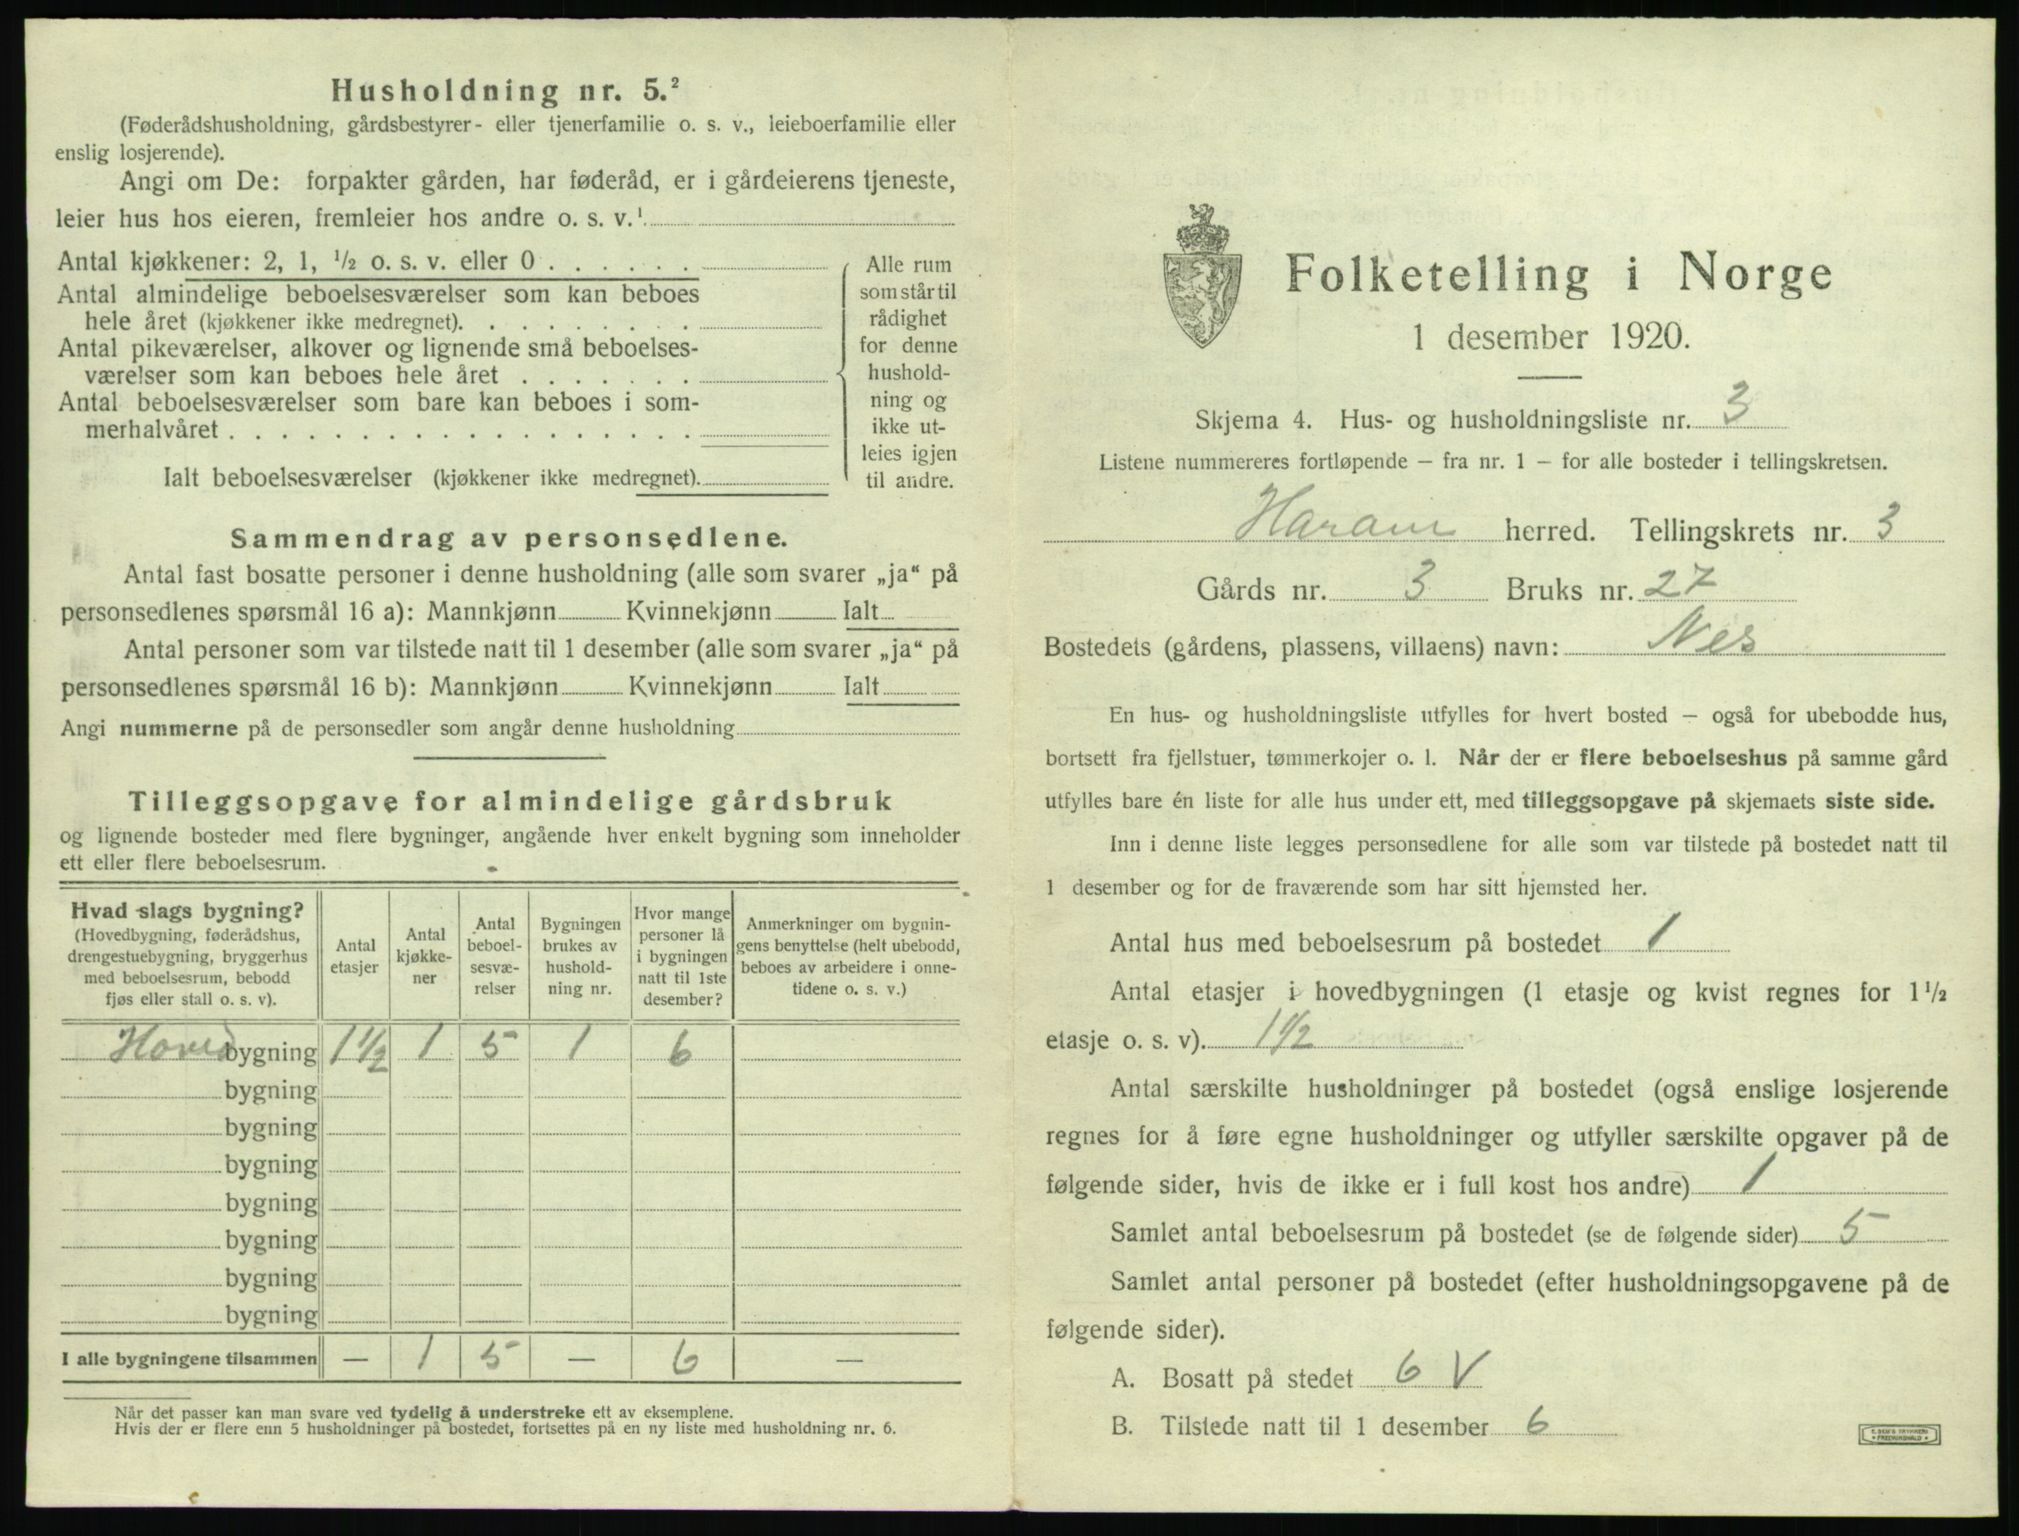 Husholdning nr. 5.²
(Føderådshusholdning, gårdsbestyrer- eller tjenerfamilie o. s. v., leieboerfamilie eller
enslig losjerende).
Angi om De: forpakter gården, har føderåd, er i gårdeierens tjeneste,
leier hus hos eieren, fremleier hos andre o. s. v.¹
Antal kjøkkener: 2, 1, ½ o. s. v. eller 0
Antal almindelige beboelsesværelser som kan beboes
hele året (kjøkkener ikke medregnet).
Antal pikeværelser, alkover og lignende små beboelses-
værelser som kan beboes hele året
Antal beboelsesværelser som bare kan beboes i som-
merhalvåret
Ialt beboelsesværelser (kjøkkener ikke medregnet).
Alle rum
som står til
rådighet
for denne
hushold-
ning og
ikke ut-
leies igjen
til andre.
Sammendrag av personsedlene.
Antal fast bosatte personer i denne husholdning (alle som svarer „ja“ på
personsedlenes spørsmål 16 a): Mannkjønn Kvinnekjønn Ialt
Antal personer som var tilstede natt til 1 desember (alle som svarer „ja“ på
personsedlenes spørsmål 16 b): Mannkjønn Kvinnekjønn Ialt
Angi nummerne på de personsedler som angår denne husholdning
Tilleggsopgave for almindelige gårdsbruk
og lignende bosteder med flere bygninger, angående hver enkelt bygning som inneholder
ett eller flere beboelsesrum.
Hvad slags bygning?
(Hovedbygning, føderådshus,
drengestuebygning, bryggerhus
med beboelsesrum, bebodd
fjøs eller stall o. s. v).
Antal
etasjer
Antal
kjøkke-
ner
Antal
beboel-
sesvæ-
relser
Bygningen
brukes av
hushold-
ning nr.
Hvor mange
personer lå
i bygningen
natt til 1ste
desember?
Anmerkninger om bygnin-
gens benyttelse (helt ubebodd,
beboes av arbeidere i onne-
tidene o. s. v.)
Hoved bygning 1 1/2 1 5 1 6
bygning
bygning
bygning
bygning
bygning
bygning
bygning
I alle bygningene tilsammen — 1 5 — 6 —
Når det passer kan man svare ved tydelig å understreke ett av eksemplene.
Hvis der er flere enn 5 husholdninger på bostedet, fortsettes på en ny liste med husholdning nr. 6.
Folketelling i Norge
1 desember 1920.
Skjema 4. Hus- og husholdningsliste nr. 3
Listene nummereres fortløpende — fra nr. 1 — for alle bosteder i tellingskretsen.
Haram herred. Tellingskrets nr. 3
Gårds nr. 3 Bruks nr. 27
Bostedets (gårdens, plassens, villaens) navn: Nes
En hus- og husholdningsliste utfylles for hvert bosted — også for ubebodde hus,
bortsett fra fjellstuer, tømmerkojer o. l. Når der er flere beboelseshus på samme gård
utfylles bare én liste for alle hus under ett, med tilleggsopgave på skjemaets siste side.
Inn i denne liste legges personsedlene for alle som var tilstede på bostedet natt til
1 desember og for de fraværende som har sitt hjemsted her.
Antal hus med beboelsesrum på bostedet 1
Antal etasjer i hovedbygningen (1 etasje og kvist regnes for 1½
etasje o. s. v). 1 1/2
Antal særskilte husholdninger på bostedet (også enslige losjerende
regnes for å føre egne husholdninger og utfyller særskilte opgaver på de
følgende sider, hvis de ikke er i full kost hos andre) 1
Samlet antal beboelsesrum på bostedet (se de følgende sider) 5
Samlet antal personer på bostedet (efter husholdningsopgavene på de
følgende sider).
A. Bosatt på stedet 6 V
B. Tilstede natt til 1 desember 6